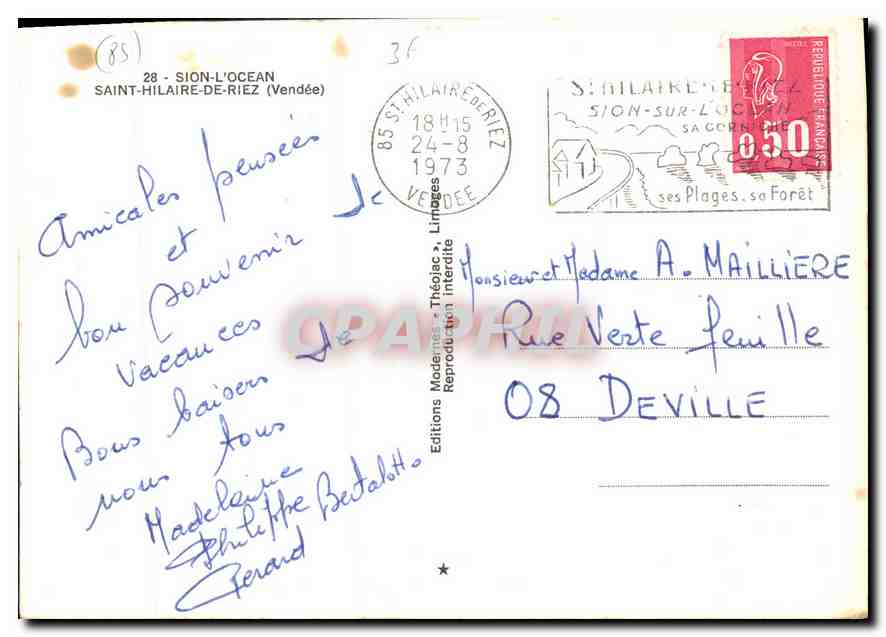 (85)
3F
28 - SION-L'OCEAN
SAINT-HILAIRE-DE-RIEZ (Vendée)
85 ST HILAIRE DE RIEZ
18H15
24-8
1973
VENDEE
ST HILAIRE-DE-RIEZ
SION-SUR-L'OCEAN
SA CORNICHE
ses Plages, sa Forêt
REPUBLIQUE FRANÇAISE
0,50
Amicales pensées
et
bon souvenir de
vacances
Bons baisers de
nous tous
Madeleine
Philippe Bertalotto
Gerard
Editions Modernes « Théojac », Limoges
Reproduction interdite
Monsieur et Madame A. MAILLIERE
Rue Verte feuille
08 DEVILLE
CPAPHIL